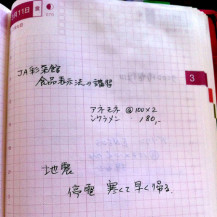 月11日 金
3
JA彩菜館
食品表示法の講習
アネモネ @100×2
シクラメン 180,-
地震
停電 寒くて早く帰る